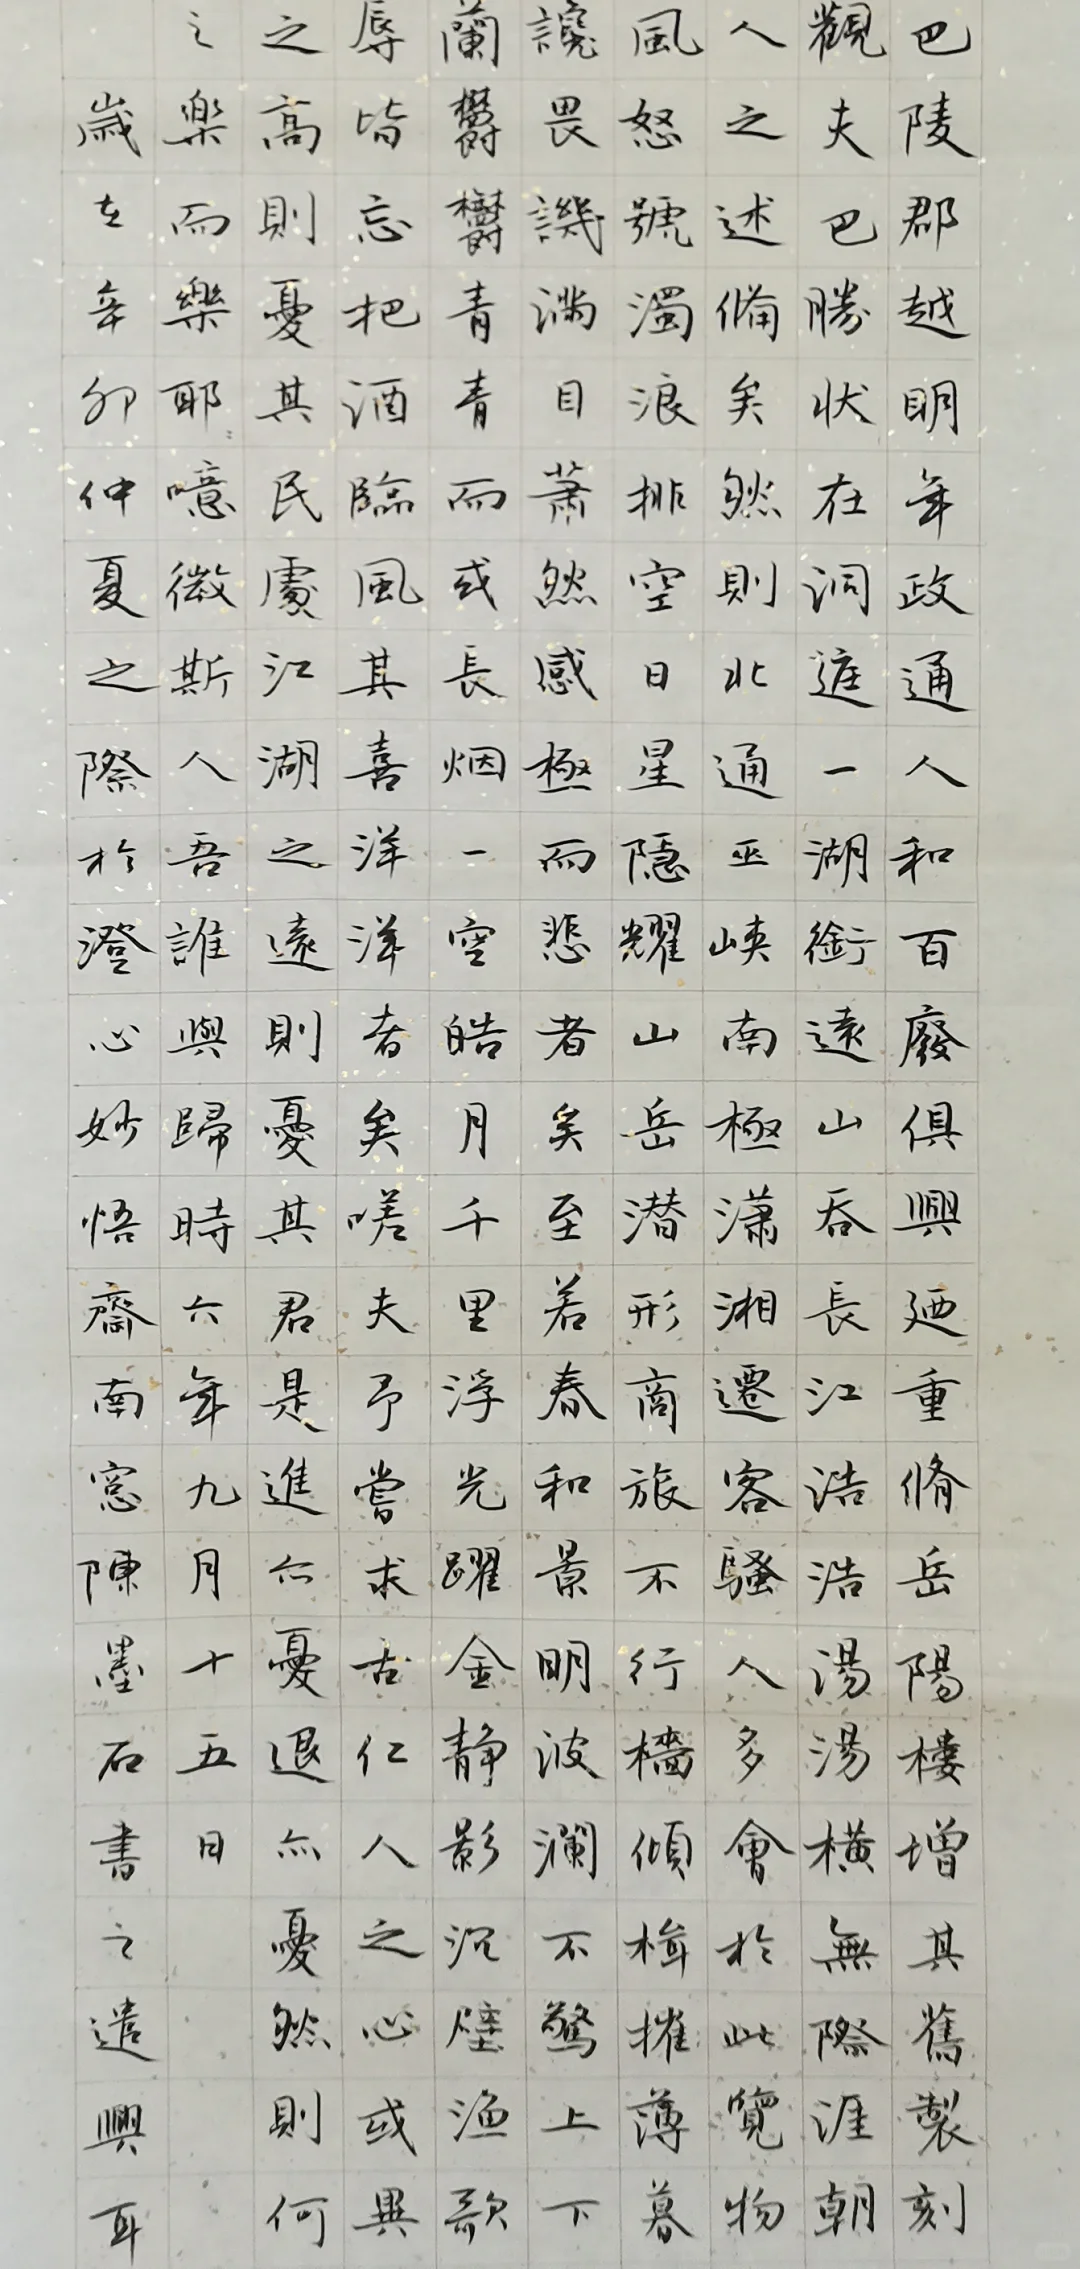 巴陵郡越明年政通人和百廢俱興迺重脩岳陽樓增其舊製刻
觀夫巴勝狀在洞庭一湖銜遠山吞長江浩浩湯湯橫無際涯朝
人之述備矣然則北通巫峽南極瀟湘遷客騷人多會於此覽物
風怒號濁浪排空日星隱耀山岳潛形商旅不行檣傾楫摧薄暮
讒畏譏滿目蕭然感極而悲者矣至若春和景明波瀾不驚上下
蘭鬱鬱青青而或長烟一空皓月千里浮光躍金靜影沉壁漁歌
辱皆忘把酒臨風其喜洋洋者矣嗟夫予嘗求古仁人之心或異
之高則憂其民處江湖之遠則憂其君是進亦憂退亦憂然則何
之樂而樂耶噫微斯人吾誰與歸時六年九月十五日
歲在辛卯仲夏之際於澄心妙悟齋南窓陳墨石書之遣興耳